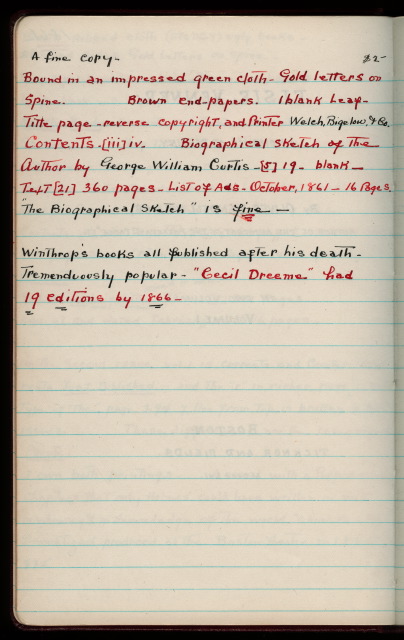 A fine copy- $2-
Bound in an impressed green cloth- Gold letters on
Spine. Brown end-papers. 1 blank leaf-
Title page - reverse copyright, and Printer Welch, Bigelow, & Co.
Contents-[iii] iv. Biographical Sketch of the
Author by George William Curtis-[5] 19- blank-
Text [21] 360 pages-List of Ads-October, 1861-16 Pages.
"The Biographical Sketch" is fine-
Winthrop's books all published after his death-
Tremenduously popular- "Cecil Dreeme" had
19 editions by 1866-